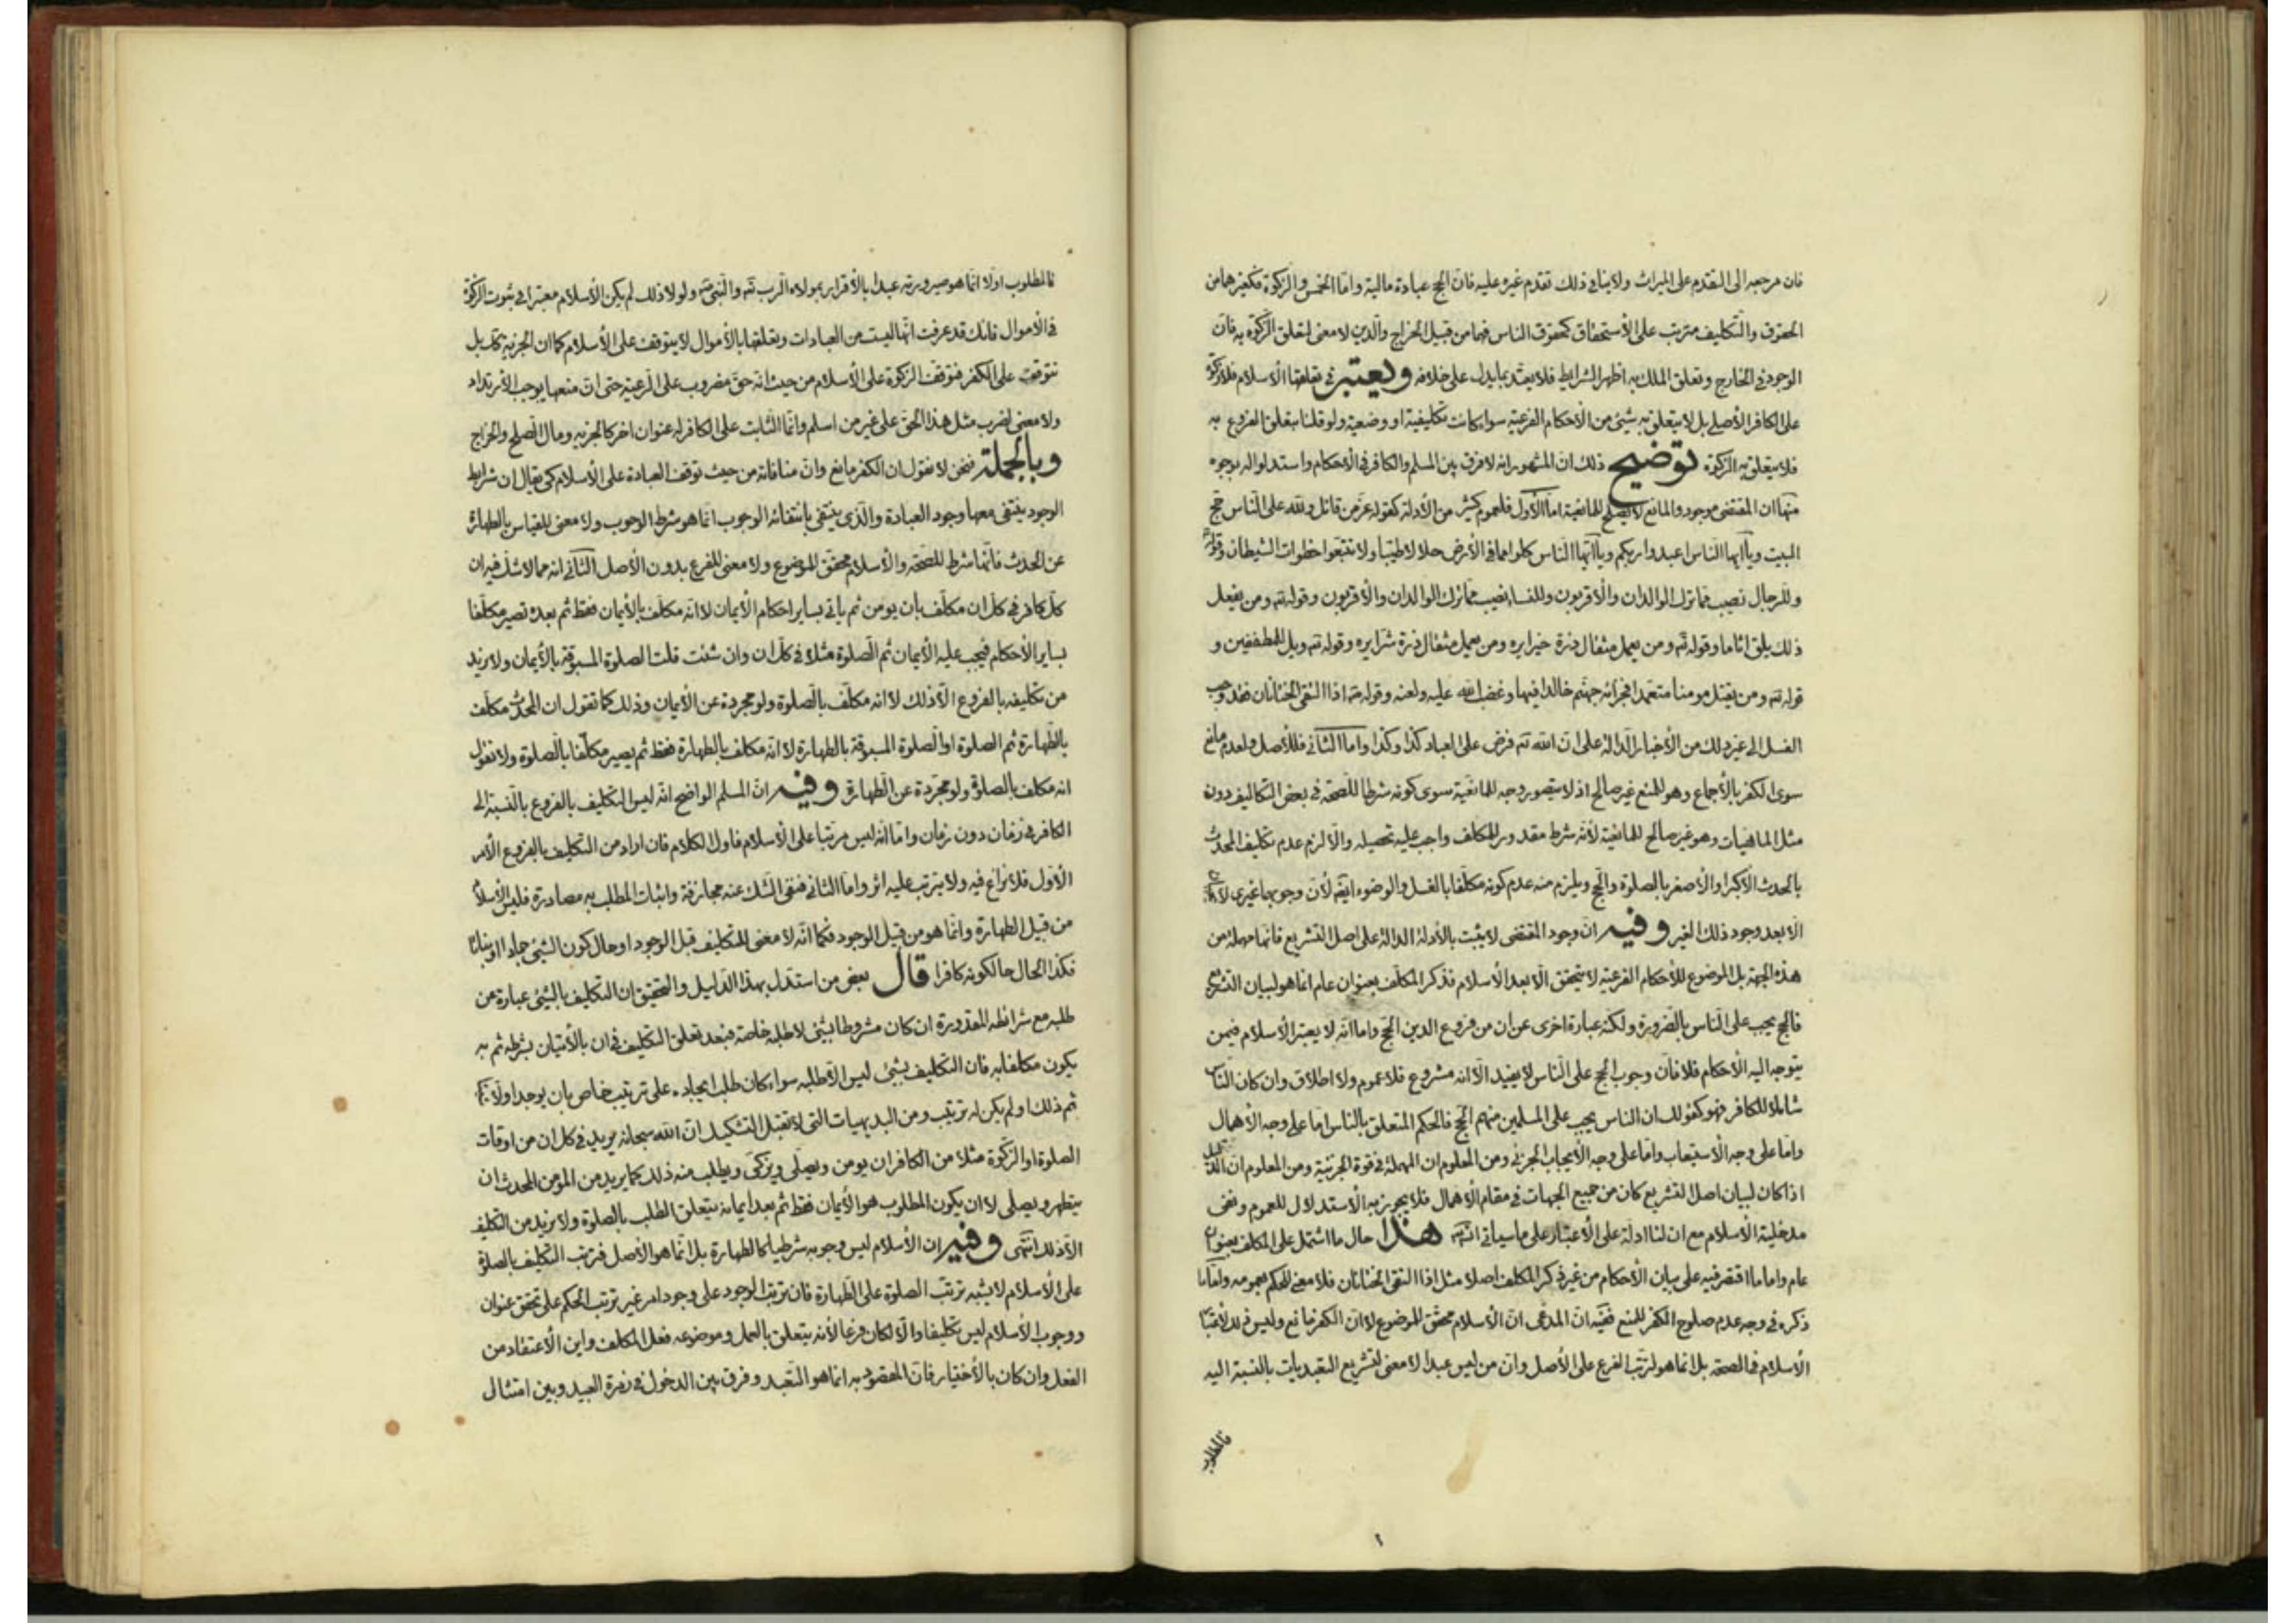 فان مرجعه الى التقدم على الميراث ولا ينافي ذلك تقدم غيره عليه فان الحج عبادة مالية واما الخمس والزكوة فكغيرهما من
الحقوق والتكليف مترتب على الاستحقاق كحقوق الناس فهما من قبيل الخراج والدين لا معنى لتعلق الزكوة به فان
الوجود في الخارج وتعلق الملك به اظهر الشرايط فلا يعتد بما يدل على خلافه ويعتبر في تعلقها الاسلام فلا زكوة
على الكافر الأصلي بل لا يتعلق به شيئ من الأحكام الفرعية سواء كانت تكليفية او وضعية ولو قلنا بتعلق الفروع به
فلا يتعلق به الزكوة توضيح ذلك ان المشهور انه لا فرق بين المسلم والكافر في الأحكام واستدلوا له بوجوه
منها ان المقتضى موجود والمانع لا يصلح للمانعية اما الأول فلعموم كثير من الأدلة كقوله عز من قائل ولله على الناس حج
البيت ويا ايها الناس اعبدوا ربكم ويا ايها الناس كلوا مما في الأرض حلالا طيبا ولا تتبعوا خطوات الشيطان وقوله
وللرجال نصيب مما ترك الوالدان والأقربون وللنساء نصيب مما ترك الوالدان والأقربون وقوله تع ومن يفعل
ذلك يلق اثاما وقوله تع ومن يعمل مثقال ذرة خيرا يره ومن يعمل مثقال ذرة شرا يره وقوله تع ويل للمطففين و
قوله تع ومن يقتل مومنا متعمدا فجزائه جهنم خالدا فيها وغضب الله عليه ولعنه وقوله اذا التقى الختانان فقد وجب
الغسل الى غير ذلك من الأخبار الدالة على ان الله تع فرض على العباد كذا وكذا واما الثاني فللأصل ولعدم مانع
سوى الكفر بالأجماع وهو للمنع غير صالح اذ لا يتصور وجه للمانعية سوى كونه شرطا للصحة في بعض التكاليف دون
مثل الماهيات وهو غير صالح للمانعية لأنه شرط مقدور للمكلف واجب عليه تحصيله والا لزم عدم تكليف المحدث
بالحدث الأكبر او الأصغر بالصلوة والحج ويلزم منه عدم كونه مكلفا بالغسل والوضوء ايضا لأن وجوبهما غيري
الا بعد وجود ذلك الغير وفيه ان وجود المقتضى لا يثبت بالأدلة الدالة على اصل التشريع فانها مهملة من
هذه الجهة بل الموضوع للأحكام الفرعية لا يتحقق الا بعد الأسلام فذكر المكلف بعنوان عام انما هو لبيان التشريع
فالحج يجب على الناس بالضرورة ولكنه عبارة اخرى عن ان من فروع الدين الحج واما انه لا يعتبر الاسلام فيمن
يتوجه اليه الأحكام فلا فان وجوب الحج على الناس لا يفيد الا انه مشروع فلا عموم ولا اطلاق وان كان الناس
شاملا للكافر فهو كقولك ان الناس يجب على المسلمين منهم الحج فالحكم المتعلق بالناس اما على وجه الأهمال
واما على وجه الأستيعاب واما على وجه الأيجاب الجزئي ومن المعلوم ان المهملة في قوة الجزئية ومن المعلوم ان الدليل
اذا كان لبيان اصل التشريع كان من جميع الجهات في مقام الأهمال فلا يجوز به الأستدلال للعموم ونفى
مدخلية الأسلام مع ان لنا ادلة على الأعتبار على ما سياتي انشاء هذا حال ما اشتمل على المكلف بعنوان
عام واما ما اقتصر فيه على بيان الأحكام من غير ذكر المكلف اصلا مثل اذا التقى الختانان فلا معنى للحكم بعمومه واما ما
ذكره في وجه عدم صلوح الكفر للمنع ففيه ان المدعى ان الأسلام محقق للموضوع لا ان الكفر مانع وليس ذلك لاعتبار
الأسلام في الصحة بل انما هو لترتب الفرع على الأصل وان من ليس عبدا لا معنى لتشريع التعبديات بالنسبة اليه
فالمطلوب
فالمطلوب اولا انما هو صيرورته عبدا بالأقرار بمولاه الرب تع والنبي ولولا ذلك لم يكن الأسلام معتبرا في ثبوت الزكوة
في الأموال فانك قد عرفت انها ليست من العبادات وتعلقها بالأموال لا يتوقف على الأسلام كما ان الجزية كك بل
تتوقف على الكفر فتوقف الزكوة على الأسلام من حيث انه حق مضروب على الرعية حتى ان منعها يوجب الأرتداد
ولا معنى لضرب مثل هذا الحق على غير من اسلم وانما الثابت على الكافر له عنوان اخر كالجزيه ومال الصلح والخراج
وبالجملة فنحن لا نقول ان الكفر مانع وان منافاته من حيث توقف العبادة على الأسلام كي يقال ان شرايط
الوجود ينتفى معها وجود العبادة والذى ينتفى بانتفائه الوجوب انما هو شرط الوجوب ولا معنى للقياس بالطهارة
عن الحدث فانها شرط للصحة والأسلام محقق للموضوع ولا معنى للفرع بدون الأصل الثاني انه مما لا شك فيه ان
كل كافر في كل ان مكلف بان يومن ثم ياتي بساير احكام الأيمان لا انه مكلف بالأيمان فقط ثم بعده تصير مكلفا
بساير الأحكام فيجب عليه الأيمان ثم الصلوة مثلا في كل ان وان شئت قلت الصلوة المسبوقة بالأيمان ولا نريد
من تكليفه بالفروع الا ذلك لا انه مكلف بالصلوة ولو مجردة عن الأيمان وذلك كما تقول ان المحدث مكلف
بالطهارة ثم الصلوة او الصلوة المسبوقة بالطهارة لا انه مكلف بالطهارة فقط ثم يصير مكلفا بالصلوة ولا نقول
انه مكلف بالصلوة ولو مجردة عن الطهارة وفيه ان المسلم الواضح انه ليس التكليف بالفروع بالنسبة الى
الكافر في زمان دون زمان واما انه ليس مرتبا على الأسلام فاول الكلام فان اراد من التكليف بالفروع الأمر
الأول فلا نزاع فيه ولا يترتب عليه اثر واما الثاني فنفى الشك عنه مجازفة واثبات المطلب به مصادرة فليس الأسلام
من قبيل الطهارة وانما هو من قبيل الوجود فكما انه لا معنى للتكليف قبل الوجود او حال كون الشيئ جمادا او نباتا
فكذا الحال حال كونه كافرا قال بعض من استدل بهذا الدليل والتحقيق ان التكليف بالشيئ عبارة عن
طلبه مع شرائطه المقدورة ان كان مشروطا بشئ لا طلبه خاصة فبعد تعلق التكليف في ان بالأتيان بشرطه ثم به
يكون مكلفا به فان التكليف بشئ ليس الا طلبه سواء كان طلب ايجاده على ترتيب خاص بان يوجد اولا
ثم ذلك او لم يكن له ترتيب ومن البديهيات التي لا تقبل التشكيك ان الله سبحانه يريد في كل ان من اوقات
الصلوة او الزكوة مثلا من الكافر ان يومن ويصلي ويزكى ويطلب منه ذلك كما يريد من المؤمن المحدث ان
يتطهر ويصلى لا ان يكون المطلوب هو الأيمان فقط ثم بعد ايمانه يتعلق الطلب بالصلوة ولا نريد من التكليف
الا ذلك انتهى وفيه ان الأسلام ليس وجوبه شرطيا كالطهارة بل انما هو الأصل فترتب التكليف بالصلوة
على الأسلام لا يشبه ترتب الصلوة على الطهارة فان ترتب الوجود على وجود امر غير ترتب الحكم على تحقق عنوان
ووجوب الأسلام ليس تكليفا والا لكان فرعا لأنه يتعلق بالعمل وموضوعه فعل المكلف واين الأعتقاد من
الفعل وان كان بالأختيار فان المقصود به انما هو التعبد وفرق بين الدخول في زمرة العبيد وبين امتثال